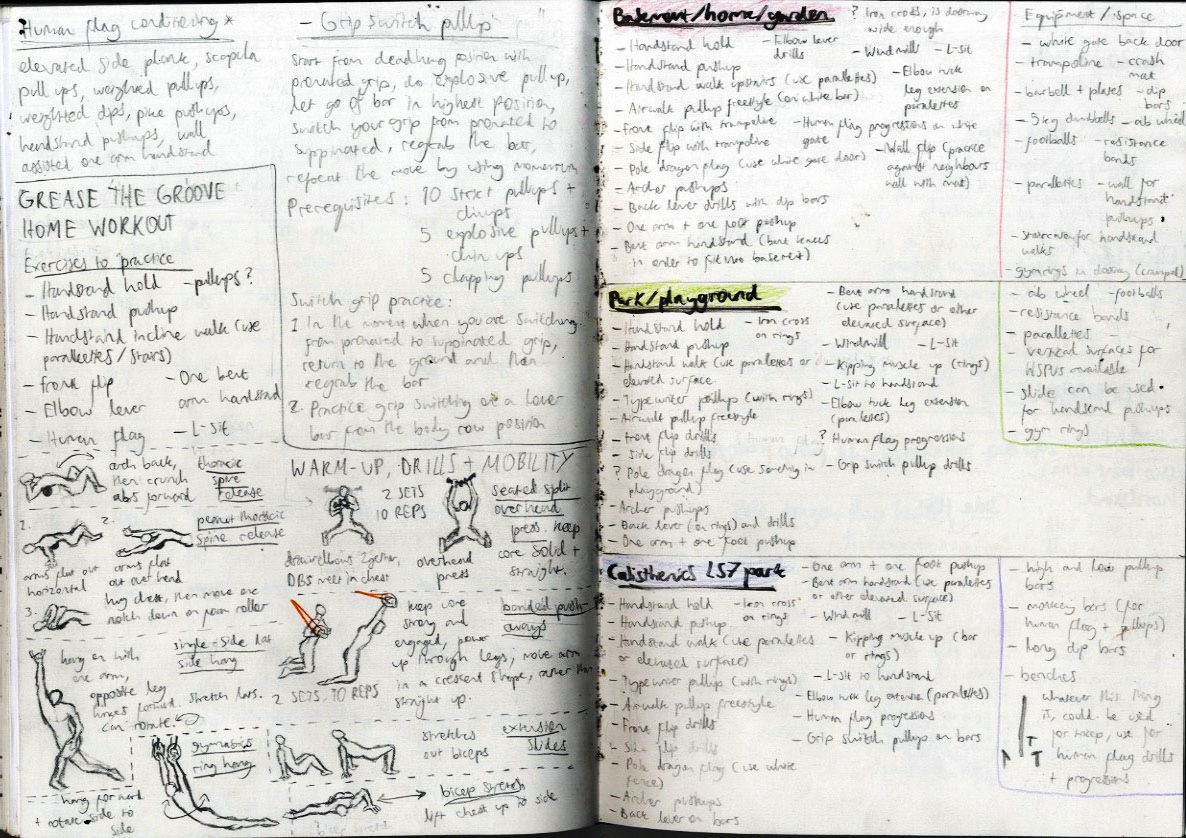 Human flag conditioning *
elevated side plank, scapula
pull ups, weighted pullups,
weighted dips, pike pushups,
handstand pushups, wall
assisted one arm handstand
GREASE THE GROOVE
HOME WORKOUT
Exercises to practice
- Handstand hold - pullups?
- Handstand pushup
- Handstand incline walk (use
parallettes / stairs)
- Front flip - One bent
arm handstand
- Elbow lever
- Human flag - L-sit
- Grip switch pullup
Start from deadhang position with
pronated grip, do explosive pull up,
let go of bar in highest position,
switch your grip from pronated to
suppinated, regrab the bar,
repeat the move by using momentum
Prerequisites: 10 strict pullups +
chinups
5 explosive pullups +
chin ups
5 clapping pullups
Switch grip practice:
1. In the moment when you are switching
from pronated to supinated grip,
return to the ground and then
regrab the bar
2. Practice grip switching on a lower
bar from the body row position
arch back,
then crunch
abs forward
thoracic
spine
release
1.
2.
peanut thoracic
spine release
arms flat out
horizontal
arms flat
out over head
3.
hug chest, then move one
notch down on foam roller
single-side lat
side hang
hang on with
one arm,
opposite leg
lunges forward. stretch lats.
can rotate.
gymnastics
ring hang
hang forward
+ rotate side to
side
WARM-UP, DRILLS + MOBILITY
2 SETS
10 REPS
seated split
overhead
press. Keep
core solid +
straight.
draw elbows 2gether,
DBS meet in chest
overhead
press
keep core
strong and
engaged, power
up through legs, move arm
in a crescent shape, rather than
straight up.
banded push-
aways
2 SETS, 10 REPS
stretches
out biceps
extension
slides
bicep stretch
lift chest up to side
Basement/home/garden
- Handstand hold - Elbow lever
drills
- Handstand pushup
- Handstand walk upstairs (use parallettes)
- Airwalk pullup freestyle (on white bar)
- Front flip with trampoline - Human flag progressions on white
gate
- Side flip with trampoline
- Pole dragon flag (use white gate door)
- Archer pushups
- Back lever drills with dip bars
- One arm + one foot pushup
- Bent arm handstand (bent knees
in order to fit into basement)
? Iron cross, is doorway
wide enough
- Windmills - L-sit
- Elbow tuck
leg extension on
parallettes
- Wall flip (practice
against neighbours
wall with mat)
Equipment/space
- white gate back door
- trampoline - crash
mat
- barbell + plates - dip
bars
- 5kg dumbbells - ab wheel
- footballs - resistance
bands
- parallettes - wall for
handstand
pushups
- staircase for handstand
walks
- gym rings in doorway (cramped)
Park/playground
- Handstand hold - Iron cross
on rings
- Handstand pushup
- Handstand walk (use parallettes or
elevated surface
- Typewriter pullup (with rings)
- Airwalk pullup freestyle
- Front flip drills
- Side flip drills
? Pole dragon flag (use something in
playground)
- Archer pushups
- Back lever (on rings) and drills
- One arm + one foot pushup
- Bent arm handstand
(use parallettes or other
elevated surface)
- Windmill - L-sit
- Kipping muscle up (rings)
- L-sit to handstand
- Elbow tuck leg extension
(parallettes)
? Human flag progressions
- Grip switch pullup drills
- ab wheel - footballs
- resistance bands
- parallettes
- vertical surfaces for
HSPUS available
- slide can be used
for handstand pushups
- gym rings
Calisthenics LS7 park
- Handstand hold - Iron cross
on rings
- Handstand pushup
- Handstand walk (use parallettes
or elevated surface)
- Typewriter pullup (with rings)
- Airwalk pullup freestyle
- Front flip drills
- Side flip drills
- Pole dragon flag (use white
fence)
- Archer pushups
- Back lever on bars
- One arm + one foot pushup
- Bent arm handstand (use parallettes
or other elevated surface)
- Windmill - L-sit
- Kipping muscle up (bar
or rings)
- L-sit to handstand
- Elbow tuck leg extension (parallettes)
- Human flag progressions
- Grip switch pullup on bars
- high and low pullup
bars
- monkey bars (for
human flag + pullups)
- long dip bars
- benches
whatever this thing
is, could be used
for tricep, use for
human flag drills
+ progressions